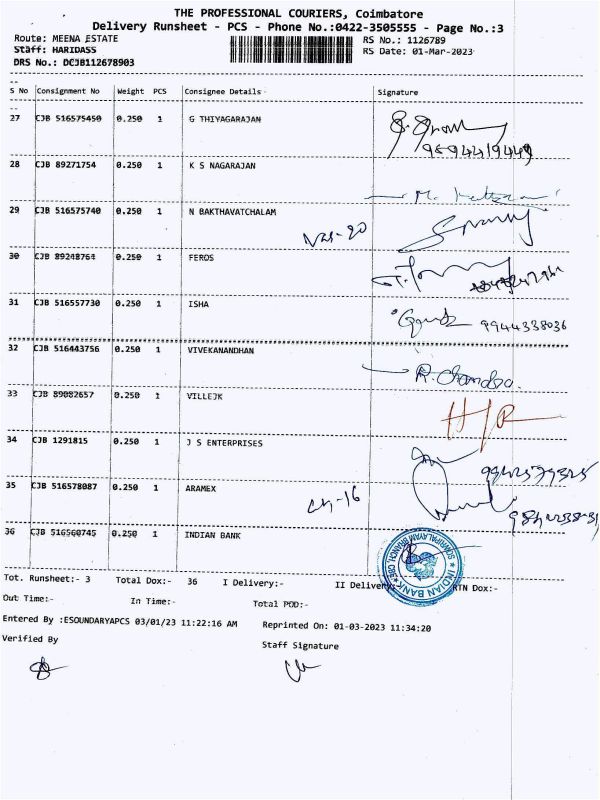 THE PROFESSIONAL COURIERS, Coimbatore
Delivery Runsheet - PCS - Phone No.:0422-3505555 - Page No.:3
Route: MEENA ESTATE
RS No.: 1126789
Staff: HARIDASS
RS Date: 01-Mar-2023
DRS No.: DCJB112678903
S No Consignment No Weight PCS Consignee Details Signature
27 CJB 516575450 0.250 1 G THIYAGARAJAN
28 CJB 89271754 0.250 1 K S NAGARAJAN
29 CJB 516575740 0.250 1 N BAKTHAVATCHALAM
30 CJB 89248764 0.250 1 FEROS
31 CJB 516557730 0.250 1 ISHA
9944338036
32 CJB 516443756 0.250 1 VIVEKANANDHAN
R. Chandra.
33 CJB 89082657 0.250 1 VILLEJK
34 CJB 1291815 0.250 1 J S ENTERPRISES
35 CJB 516578087 0.250 1 ARAMEX
36 CJB 516560745 0.250 1 INDIAN BANK
INDIAN BANK
Tot. Runsheet:- 3 Total Dox:- 36 I Delivery:- II Delivery RTN Dox:-
Out Time:- In Time:- Total POD:-
Entered By :ESOUNDARYAPCS 03/01/23 11:22:16 AM Reprinted On: 01-03-2023 11:34:20
Verified By Staff Signature